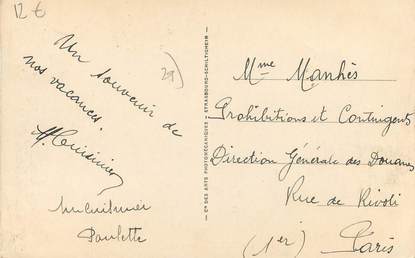 12 €
29)
Un souvenir de
nos vacances.
Paulette
Cie DES ARTS PHOTOMÉCANIQUES - STRASBOURG-SCHILTIGHEIM
Mme Manhès
Prohibitions et Contingents
Direction Générale des Douanes
Rue de Rivoli
(1er) Paris